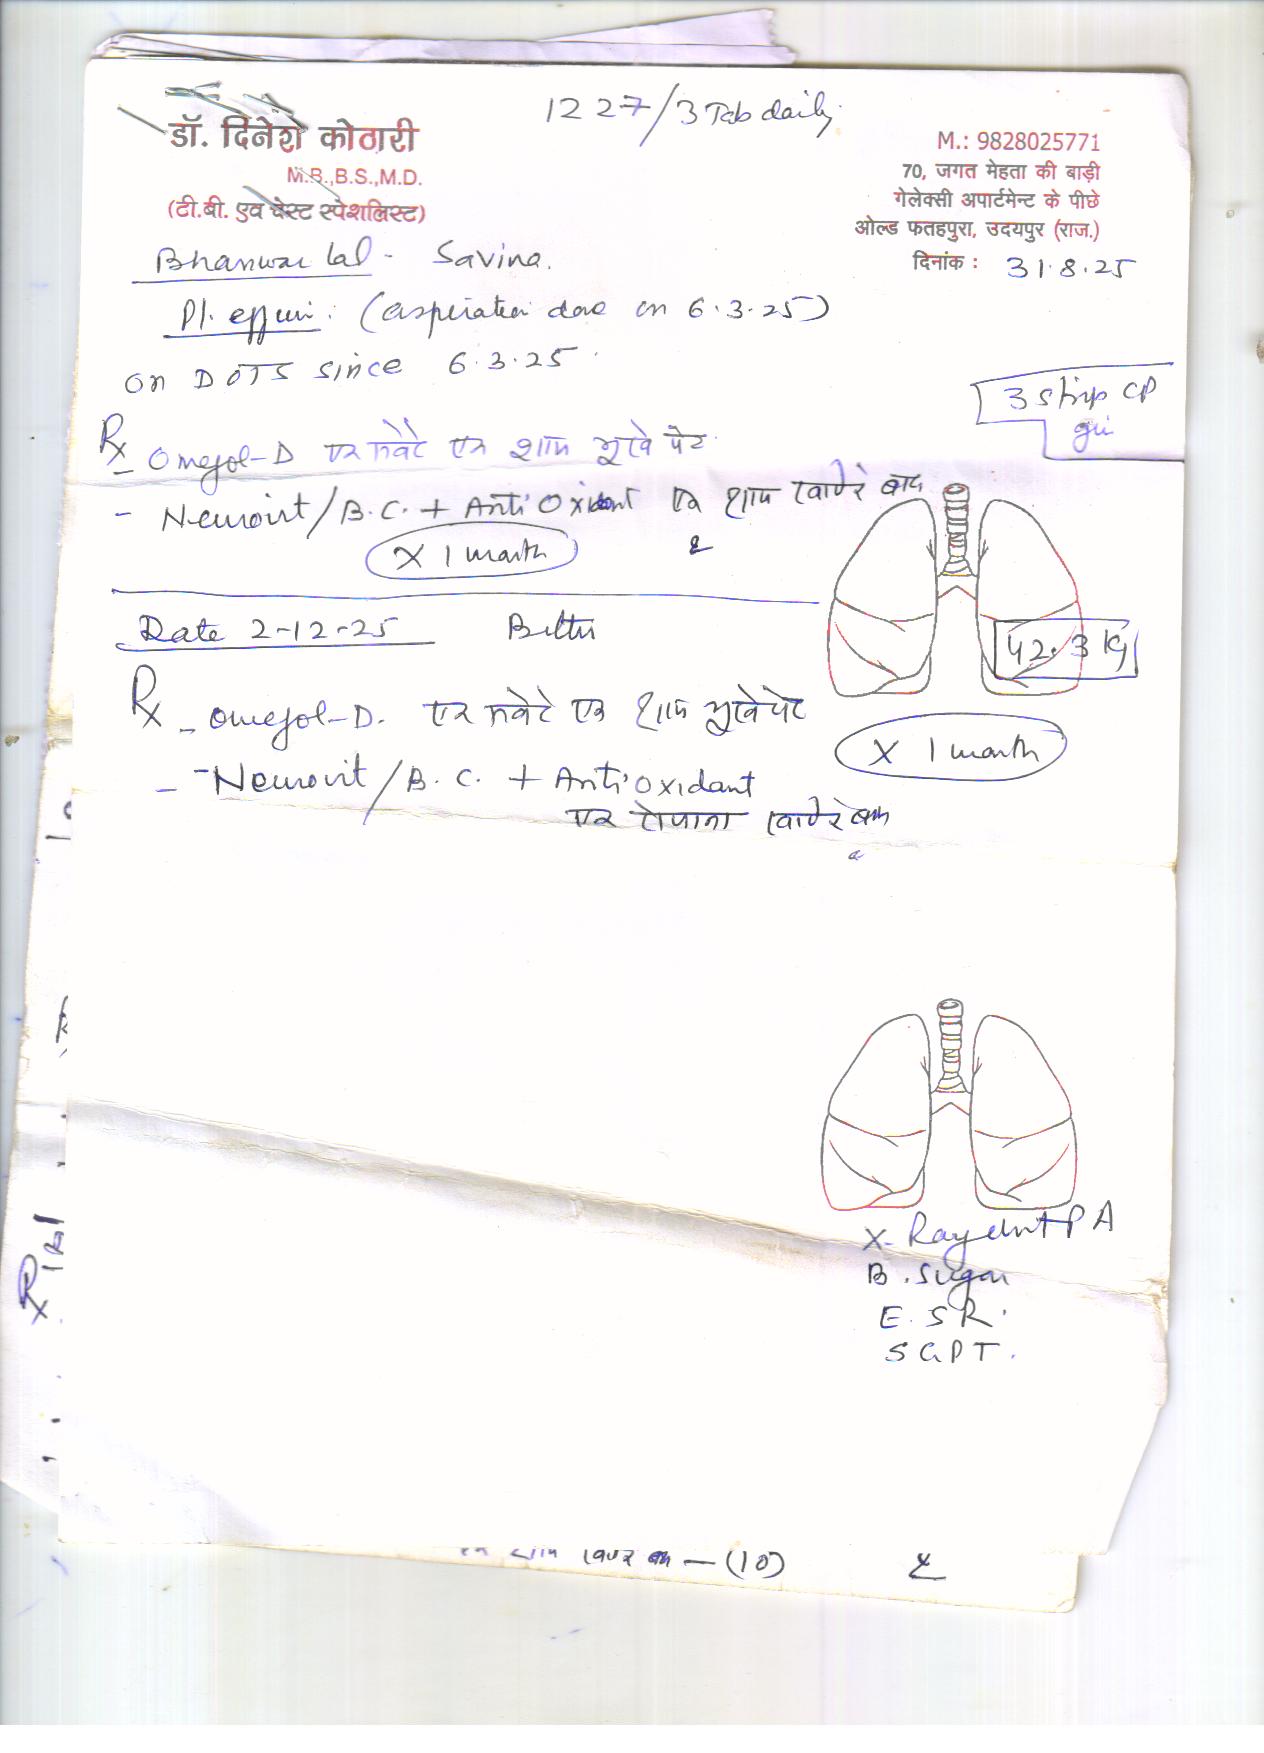 1227/3 Tab daily.
डॉ. दिनेश कोठारी
M.B.,B.S.,M.D.
(टी.बी. एवं चेस्ट स्पेशलिस्ट)
M.: 9828025771
70, जगत मेहता की बाड़ी
गेलेक्सी अपार्टमेन्ट के पीछे
ओल्ड फतहपुरा, उदयपुर (राज.)
दिनांक : 31.8.25
Bhanwar lal - Savina.
Pl. : (aspiration done on 6.3.25)
on DOTS since 6.3.25.
3 strip CP
Rx
- Omejol-D एक सवेरे एक शाम भूखे पेट
- Neurovit/B.C. + Anti Oxidant एक शाम खाने के बाद
x 1 month
Date 2-12-25
42.3 Kg
Rx - omejol-D. एक सवेरे एक शाम भूखे पेट
x 1 month
- Neurovit/B.C. + Anti Oxidant
एक रोजाना खाने के बाद
X-Ray chest PA
B. Sugar
E.S.R.
SGPT.
Rx
— (10)